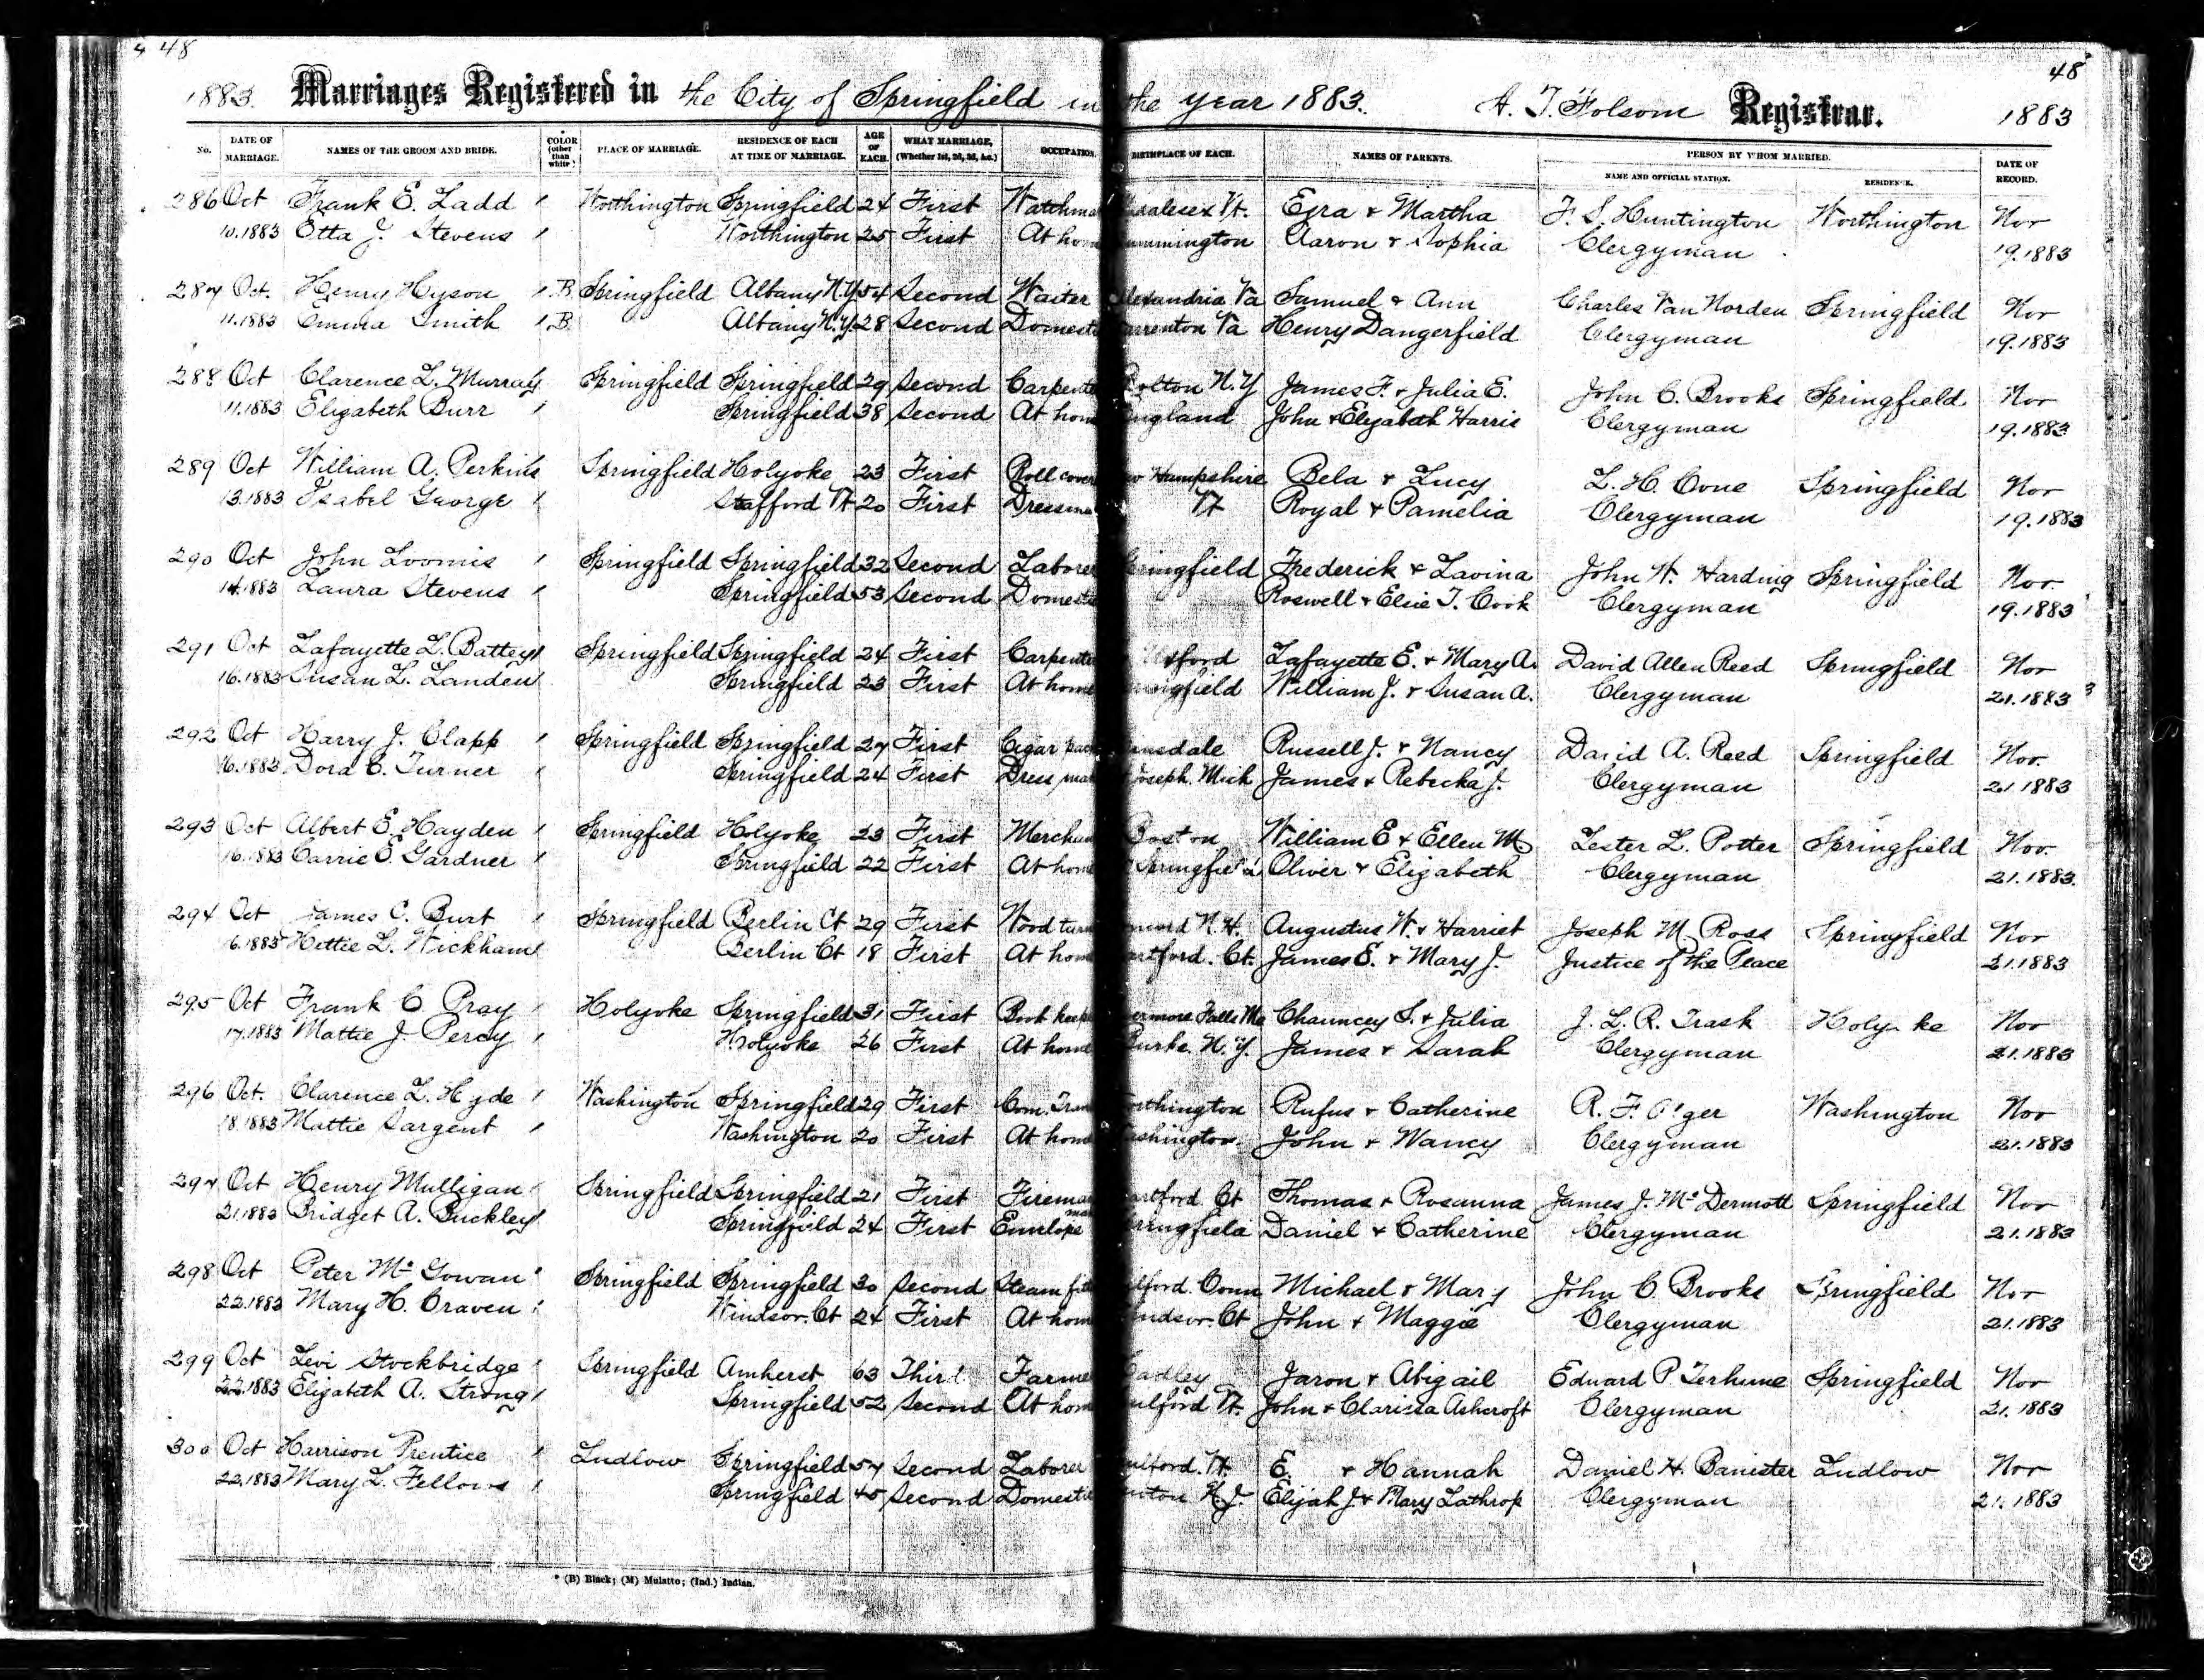 48
48
1883. Marriages Registered in the City of Springfield in the year 1883. A. T. Folsom Registrar. 1883
No. DATE OF MARRIAGE. NAMES OF THE GROOM AND BRIDE. COLOR (other than white) PLACE OF MARRIAGE. RESIDENCE OF EACH AT TIME OF MARRIAGE. AGE OF EACH. WHAT MARRIAGE, (Whether 1st, 2d, 3d, &c.) OCCUPATION. BIRTHPLACE OF EACH. NAMES OF PARENTS. PERSON BY WHOM MARRIED. NAME AND OFFICIAL STATION. RESIDENCE. DATE OF RECORD.
286 Oct Frank E. Ladd Worthington Springfield 24 First Watchma Vt. Ezra & Martha F. S. Huntington Worthington Nov
10.1883 Etta J. Stevens Worthington 25 First At hom ummington Aaron & Sophia Clergyman 19.1883
287 Oct. Henry Hyson B Springfield Albany N.Y 54 Second Waiter lexandria Va Samuel & Ann Charles Van Norden Springfield Nov
11.1883 Emma Smith B Albany N.Y 28 Second Domest arrenton Va Henry Dangerfield Clergyman 19.1883
288 Oct Clarence L. Murray Springfield Springfield 29 Second Carpente Bolton N.Y James F. & Julia E. John C. Brooks Springfield Nov
11.1883 Elizabeth Burr Springfield 38 Second At hom England John & Elizabeth Harris Clergyman 19.1883
289 Oct William A. Perkins Springfield Holyoke 23 First Roll cover w Hampshire Bela & Lucy L. H. Cone Springfield Nov
13.1883 Isabel George Stafford Vt 20 First Dressma Vt Royal & Pamelia Clergyman 19.1883
290 Oct John Loomis Springfield Springfield 32 Second Laborer pringfield Frederick & Lavina John W. Harding Springfield Nov.
14.1883 Laura Stevens Springfield 53 Second Domest Roswell & Elsie T. Cook Clergyman 19.1883
291 Oct Lafayette L. Battey Springfield Springfield 24 First Carpente Lafayette E. & Mary A. David Allen Reed Springfield Nov
16.1883 Susan L. Landen Springfield 23 First At home pringfield William J. & Susan A. Clergyman 21.1883
292 Oct Harry J. Clapp Springfield Springfield 27 First Cigar pac insdale Russell J. & Nancy David A. Reed Springfield Nov.
16.1883 Dora C. Turner Springfield 24 First Dress mak Joseph. Mich James & Rebecka J. Clergyman 21.1883
293 Oct Albert E. Hayden Springfield Holyoke 23 First Merchan Boston William E & Ellen M Lester L. Potter Springfield Nov.
16.1883 Carrie E. Gardner Springfield 22 First At home Springfield Oliver & Elizabeth Clergyman 21.1883.
294 Oct James C. Burt Springfield Berlin Ct 29 First Wood turn N.H. Augustus W. & Harriet Joseph M. Ross Springfield Nov
16.1883 Hettie L. Wickham Berlin Ct 18 First At hom artford. Ct. James E. & Mary J. Justice of the Peace 21.1883
295 Oct Frank C. Pray Holyoke Springfield 31 First Book keepe ermore Falls Me Chauncey S. & Julia J. L. R. Trask Holyoke Nov
17.1883 Mattie J. Percy Holyoke 26 First At home Burke N.Y. James & Sarah Clergyman 21.1883
296 Oct. Clarence L. Hyde Washington Springfield 29 First Com. Trav orthington Rufus & Catherine R. F. Alger Washington Nov
18.1883 Mattie Sargent Washington 20 First At home ashington John & Nancy Clergyman 21.1883
297 Oct Henry Mulligan Springfield Springfield 21 First Fireman artford Ct Thomas & Rosanna James J. McDermott Springfield Nov
21.1883 Bridget A. Buckley Springfield 24 First Envelope mak pringfield Daniel & Catherine Clergyman 21.1883
298 Oct Peter McGowan Springfield Springfield 30 Second Steam fitt ilford. Conn Michael & Mary John C. Brooks Springfield Nov
22.1883 Mary H. Craven Windsor. Ct 24 First At hom indsor. Ct John & Maggie Clergyman 21.1883
299 Oct Levi Stockbridge Springfield Amherst 63 Third Farme Hadley Jaron & Abigail Edward P. Terhune Springfield Nov
22.1883 Elizabeth A. Strong Springfield 52 Second At hom uilford Vt. John & Clarissa Ashcroft Clergyman 21.1883
300 Oct Harrison Prentice Ludlow Springfield 57 Second Laborer uilford. Vt. E. & Hannah Daniel H. Banister Ludlow Nov
22.1883 Mary L. Fellows Springfield 45 Second Domestic N.J. Elijah J. & Mary Lathrop Clergyman 21.1883
* (B) Black; (M) Mulatto; (Ind.) Indian.